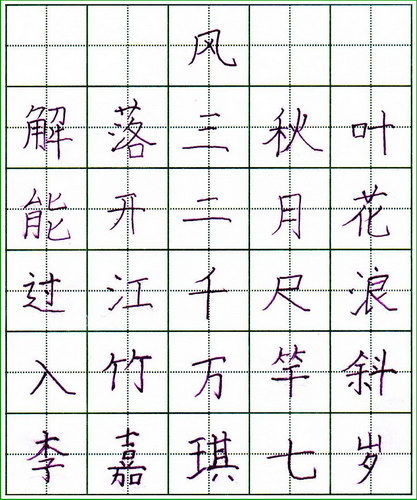 风
解落三秋叶
能开二月花
过江千尺浪
入竹万竿斜
李嘉琪七岁